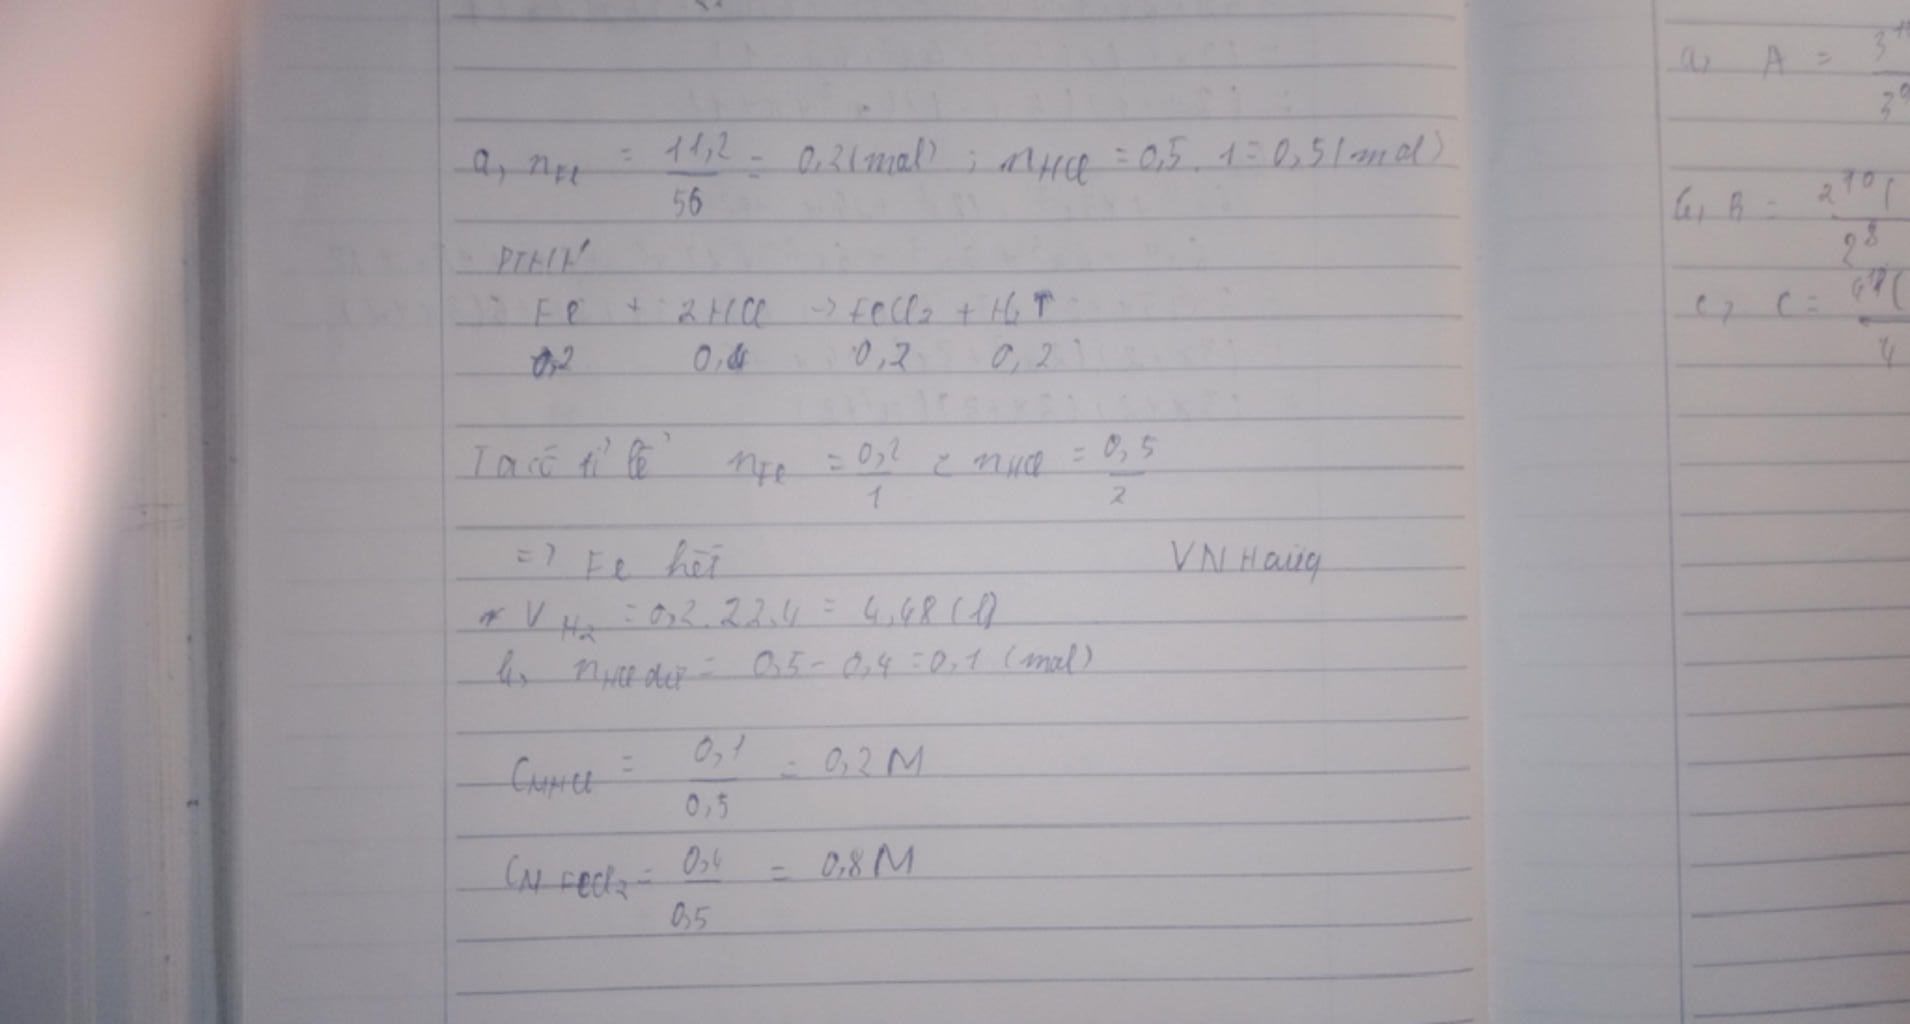 a, nFe = 11,2/56 = 0,2 (mol) ; nHCl = 0,5 . 1 = 0,5 (mol)
PTHH
Fe + 2HCl -> FeCl2 + H2↑
0,2 0,4 0,2 0,2
Ta có tỉ lệ nFe = 0,2/1 < nHCl = 0,5/2
=> Fe hết
VN Haiiq
* VH2 = 0,2 . 22,4 = 4,48 (l)
b, nHCl dư = 0,5 - 0,4 = 0,1 (mol)
CMHCl = 0,1/0,5 = 0,2 M
CM FeCl2 = 0,4/0,5 = 0,8 M
a, A =
b, B =
c, C =